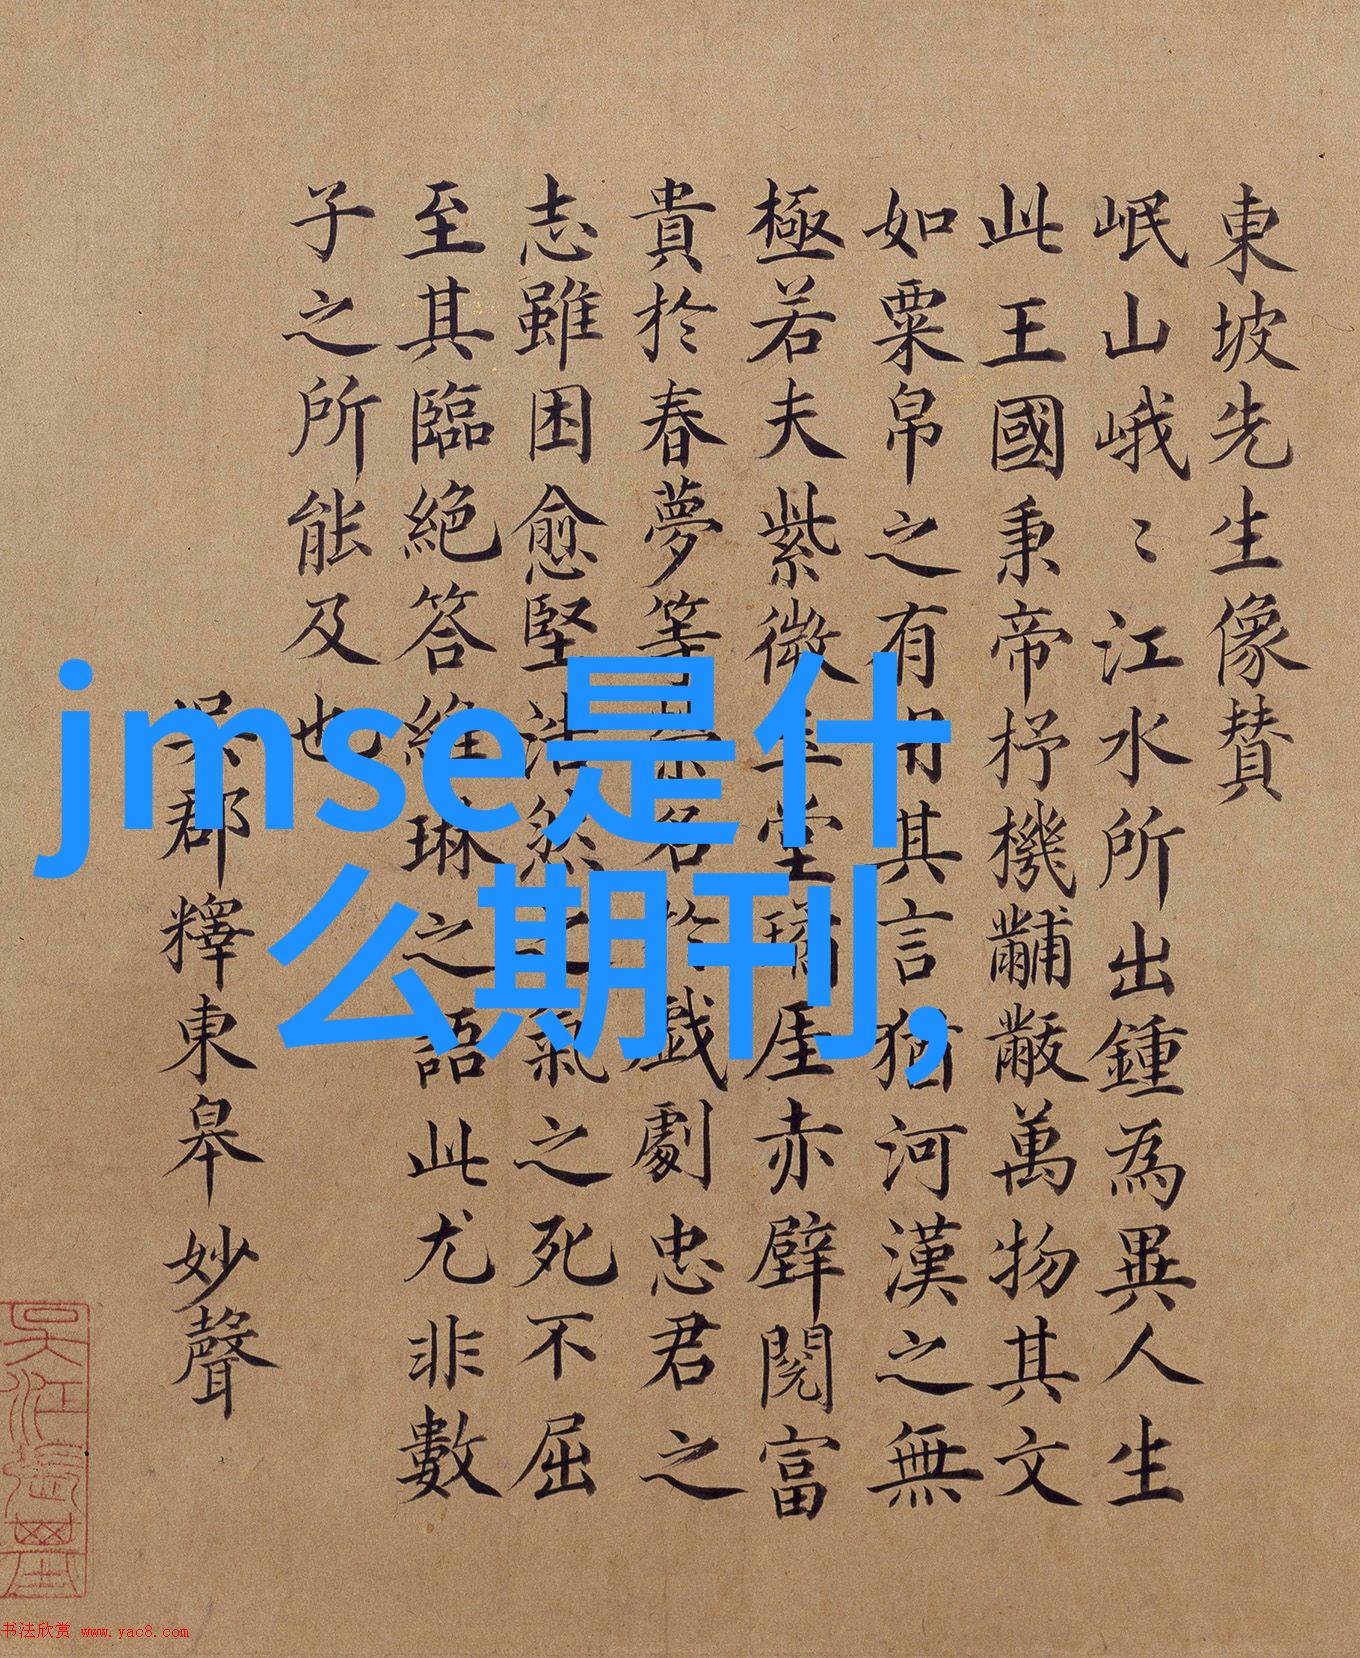 東坡先生像贊
岷山峨〻江水所出鍾為異人生
此王國秉帝杼機黼黻萬物其文
如粟帛之有用其言猶河漢之無
極若夫紫微玉堂瓊厓赤壁閱富
貴於春夢等榮名於戲劇忠君之
志雖困愈堅浩然之氣之死不屈
至其臨絕答維琳之語此尤非數
子之所能及也
吳郡釋東皋妙聲
jmse是什
么期刊,
书法欣赏 www.yac8.com